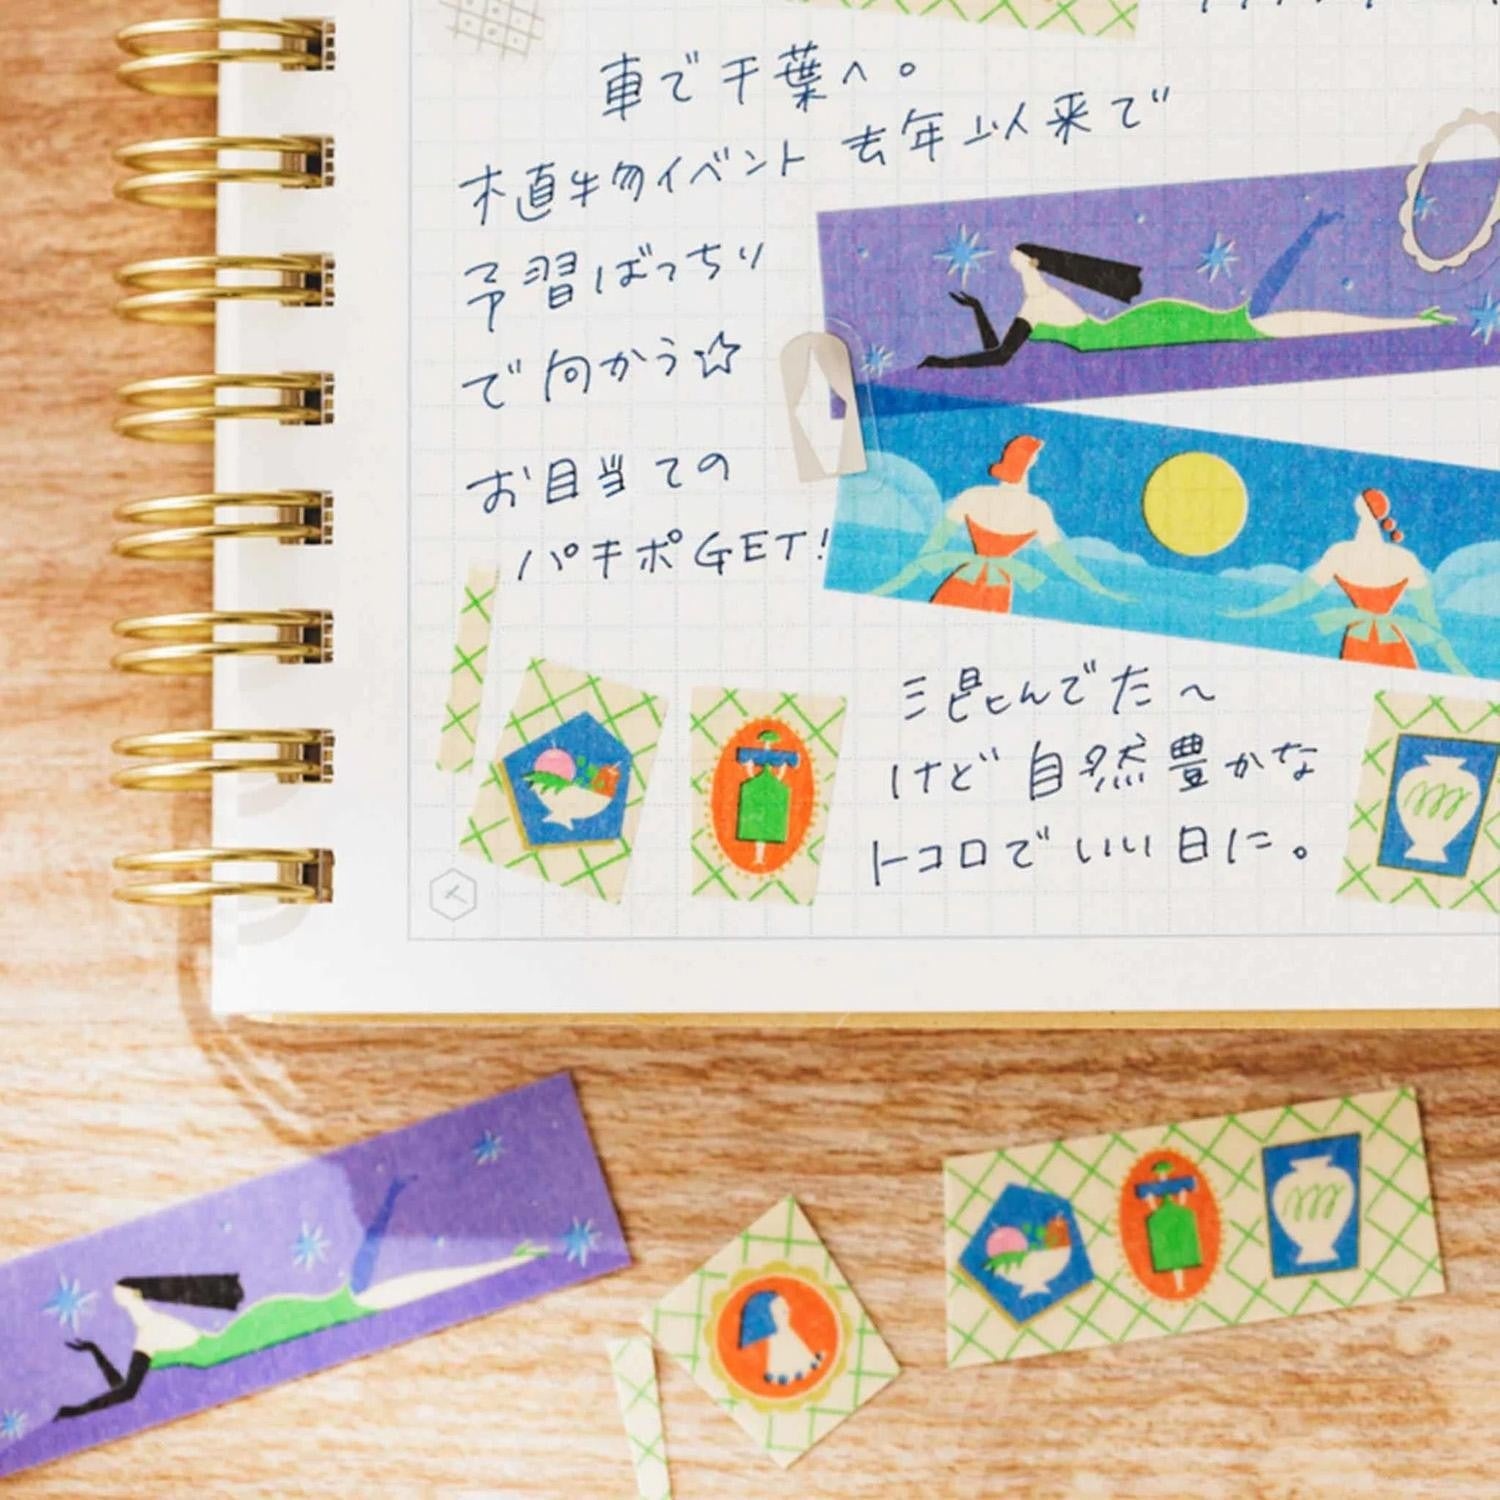 車で千葉へ。
植物イベント 去年以来で
予習ばっちり
で向かう☆
お目当ての
パキポGET!
混んでた〜
けど自然豊かな
トコロでいい日に。